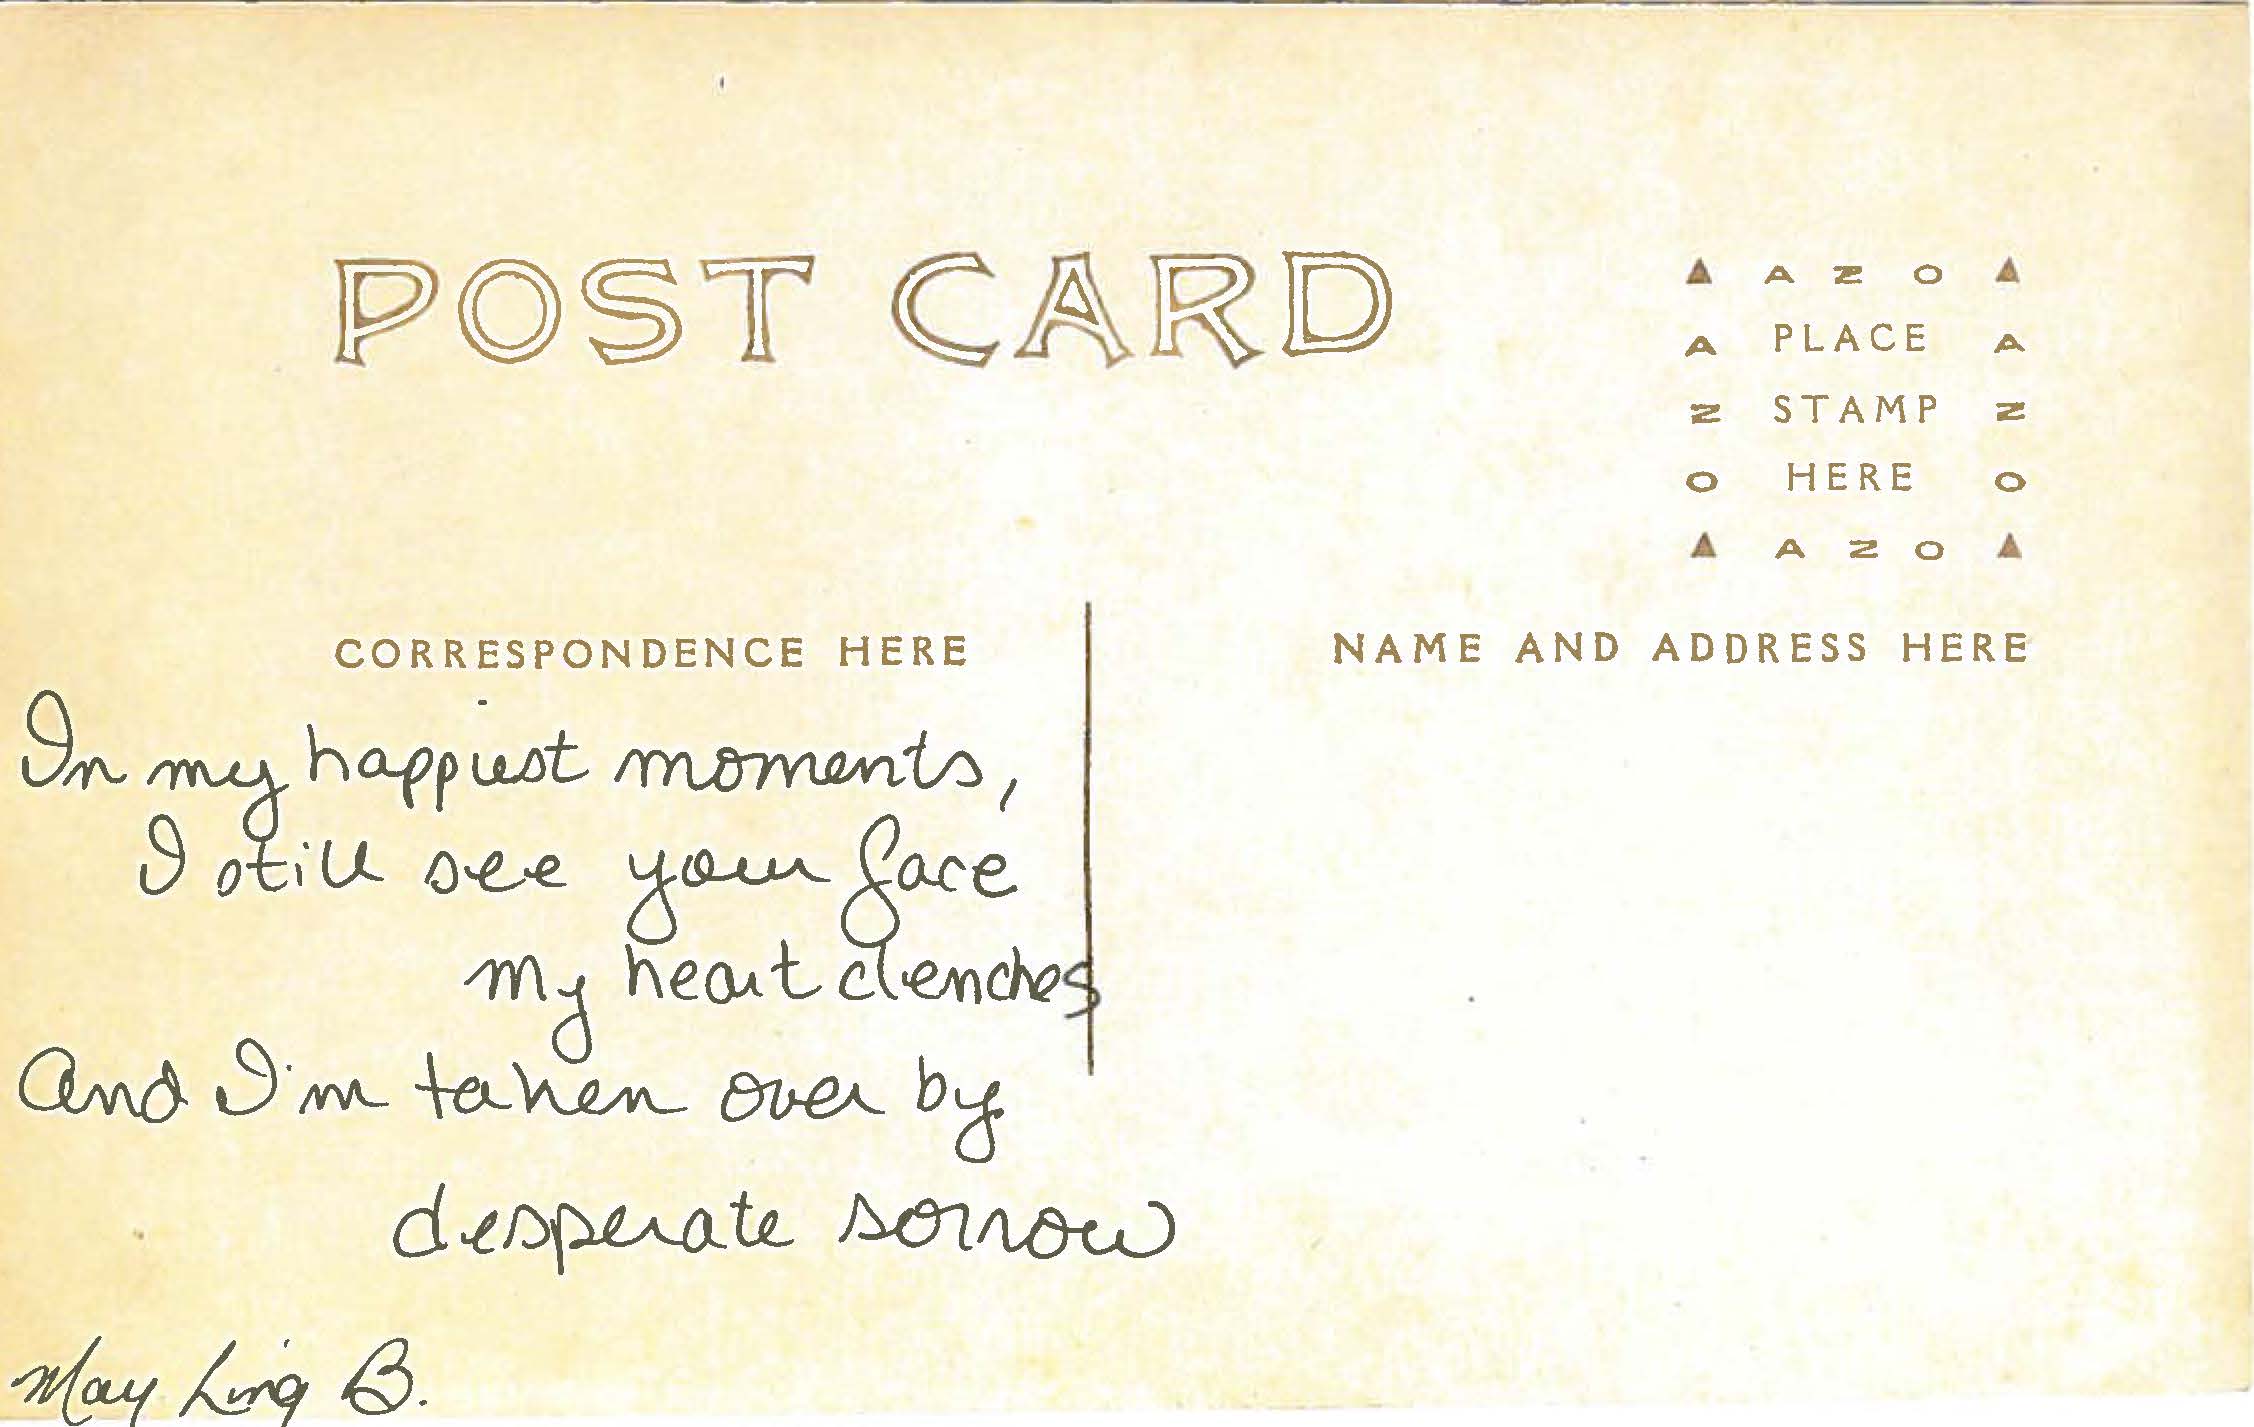 POST CARD
▲ A Z O ▲
A PLACE A
Z STAMP Z
O HERE O
▲ A Z O ▲
CORRESPONDENCE HERE
NAME AND ADDRESS HERE
In my happiest moments,
I still see your face
my heart clenches
And I'm taken over by
desperate sorrow
May Ling B.